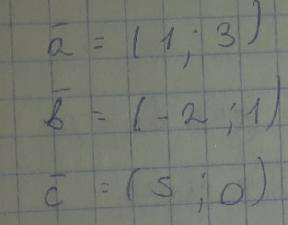 a̅ = (1; 3)
b̅ = (-2; 1)
c̅ = (5; 0)